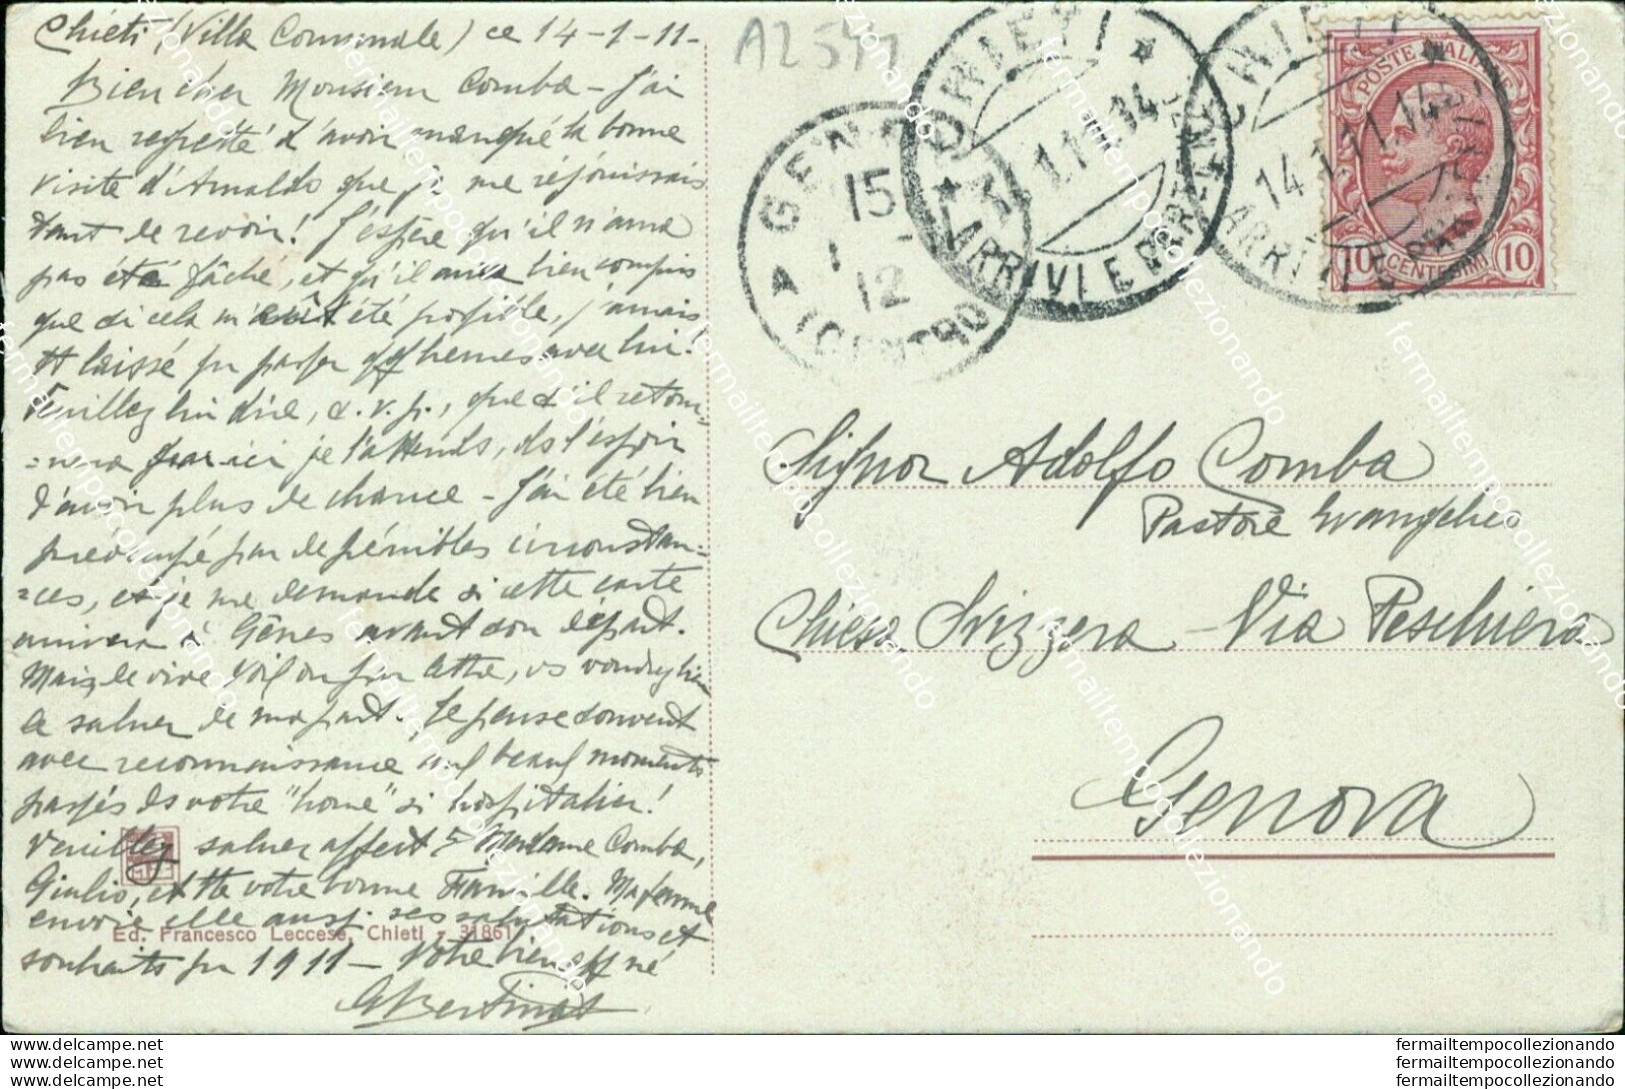 Chieti (Villa Comunale) ce 14-1-11-
Bien cher Monsieur Comba - J'ai
bien regretté d'avoir manqué la bonne
visite d'Arnaldo que je me réjouissais
tant de revoir! J'espère qu'il n'aura
pas été fâché, et qu'il aura bien compris
que si cela m'eût été possible, j'aurais
tt laissé pr passer qq heures avec lui!
Veuillez lui dire, s. v. p., que s'il retour-
-nera par ici je l'attends, ds l'espoir
d'avoir plus de chance - J'ai été bien
préoccupé par de pénibles circonstan-
-ces, et je me demande si cette carte
arrivera à Gênes avant son départ.
Mais, de vive voix ou par lettre, vs voudrez bien
le saluer de ma part. Je pense souvent
avec reconnaissance aux beaux moments
passés ds votre "home" si hospitalier!
Veuillez saluer affect. Madame Comba,
Giulio, et tte votre bonne Famille. Ma femme
envoie elle aussi ses salutations et
souhaits pr 1911 - Votre bien aff né
Ed. Francesco Leccese, Chieti - 31861
A2541
GENOVA
15
1
12
(CENTRO)
ARRIVI E PARTENZE
CHIETI
14.1.11.14
ARRIVI E PARTENZE
POSTE ITALIANE
10 CENTESIMI 10
Signor Adolfo Comba
Pastore Evangelico
Chiesa Svizzera - Via Peschiera
Genova
fermailtempocollezionando